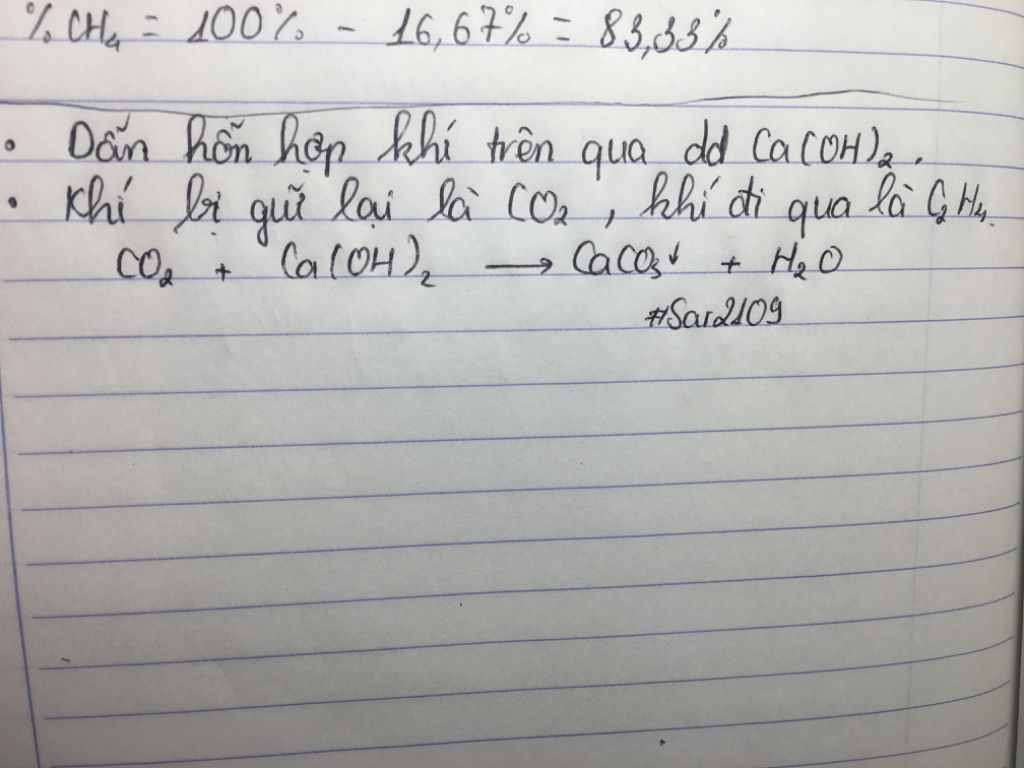 % CH₄ = 100% - 16,67% = 83,33%
• Dẫn hỗn hợp khí trên qua dd Ca(OH)₂.
• Khí bị guĩ lại là CO₂, khí đi qua là C₂H₄.
CO₂ + Ca(OH)₂ → CaCO₃↓ + H₂O
#Sar2109